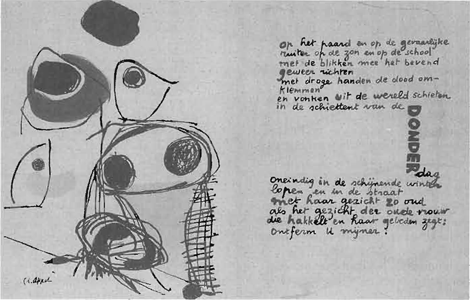 op het paard en op de gevaarlijke
ruiter op de zon en op de school
met de blikken mee het bevend
geweer richten
met droge handen de dood om-
klemmen
en vonken uit de wereld schieten
in de schiettent van de
DONDER
dag
oneindig in de schijnende winter
lopen en in de straat
met haar gezicht zo oud
als het gezicht der oude vrouw
die hakkelt en haar gebeden zegt:
ontferm U mijner!